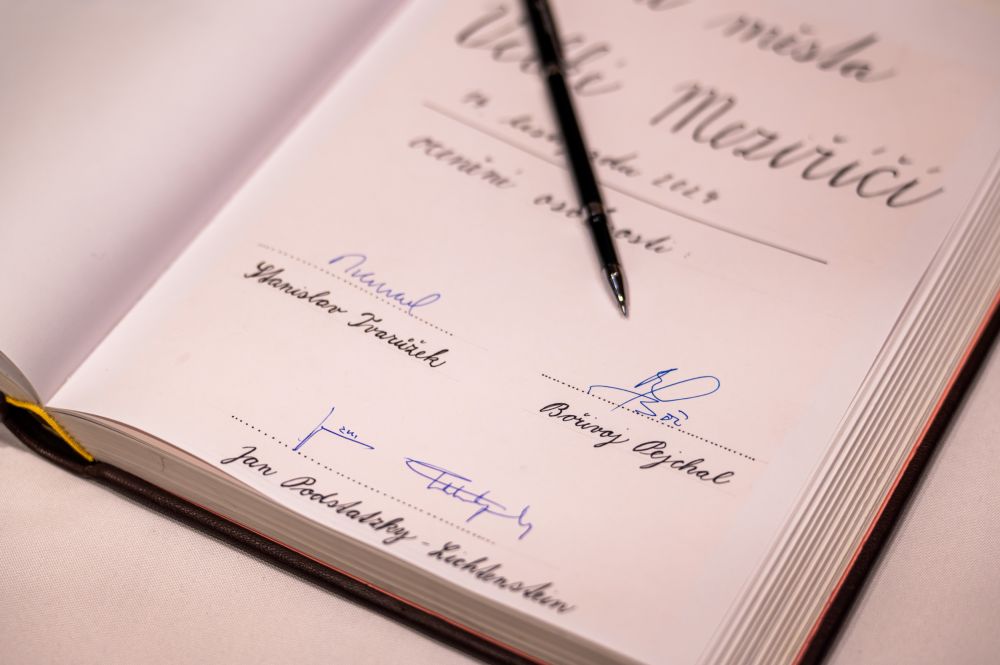 města
Velké Meziříčí
14. listopadu 2024
ocenění osobnosti:
Stanislav Tvarůžek
Bořivoj Cejchal
Jan Podstatzky-Lichtenstein